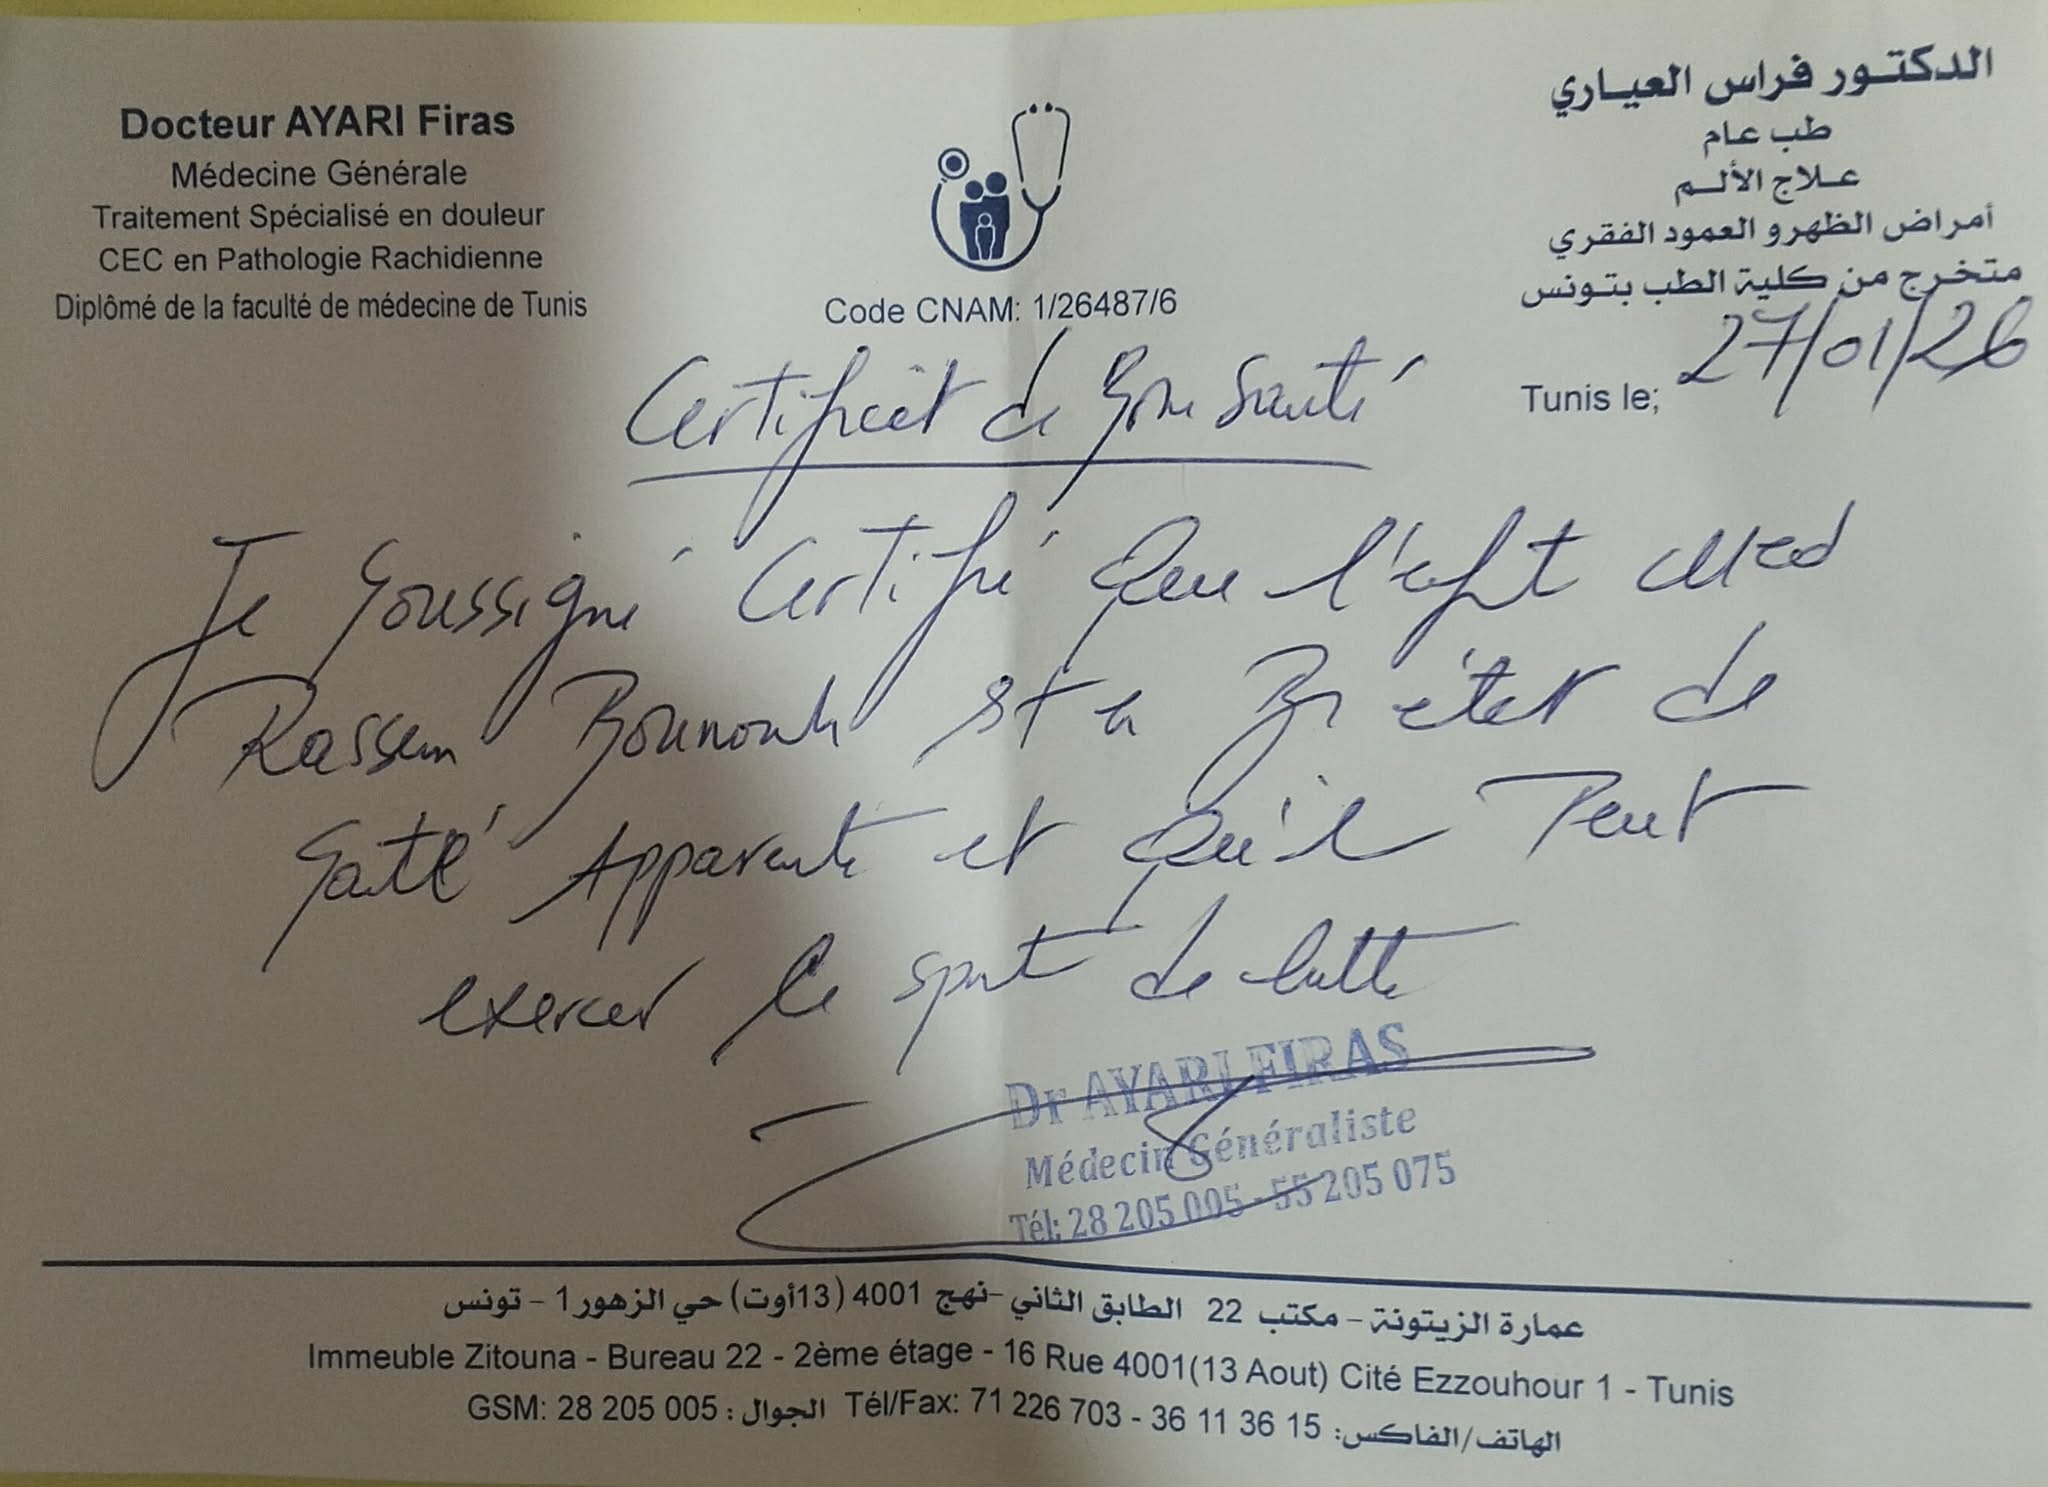 Docteur AYARI Firas
Médecine Générale
Traitement Spécialisé en douleur
CEC en Pathologie Rachidienne
Diplômé de la faculté de médecine de Tunis
Code CNAM: 1/26487/6
الدكتور فراس العياري
طب عام
علاج الألم
أمراض الظهر و العمود الفقري
متخرج من كلية الطب بتونس
Tunis le; 27/01/26
Certificat de Bonne Santé
Je soussigné certifié que l'enfant Med
Rassem est en Bn état de
santé Apparente et Qu'il Peut
exercer le sport de lutte
Dr AYARI FIRAS
Médecin Généraliste
Tél: 28 205 005 - 55 205 075
عمارة الزيتونة - مكتب 22 الطابق الثاني - نهج 4001 (13أوت) حي الزهور1 - تونس
Immeuble Zitouna - Bureau 22 - 2ème étage - 16 Rue 4001(13 Aout) Cité Ezzouhour 1 - Tunis
GSM: 28 205 005 : الجوال Tél/Fax: 71 226 703 - 36 11 36 15 :الهاتف/الفاكس